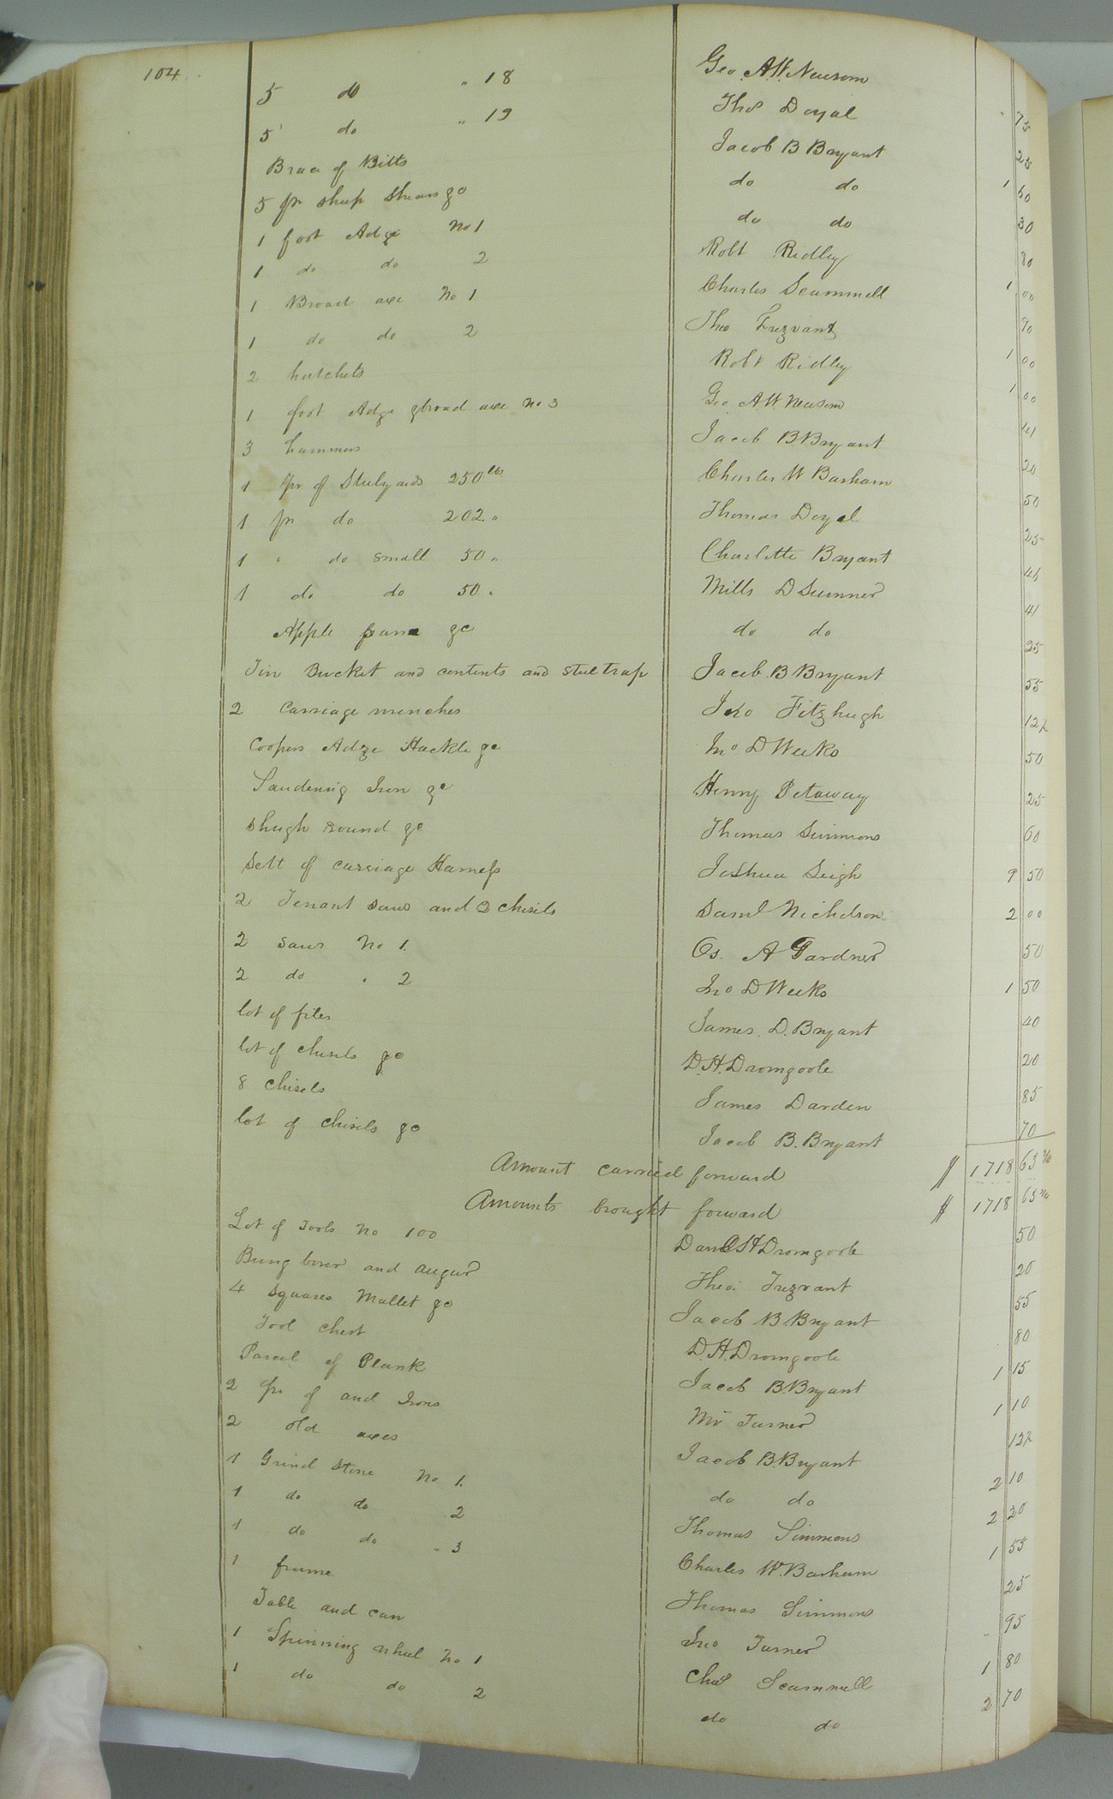 104
5 do " 18 Geo. A.W. Newsom 75
5 do " 19 Thos Doyal 25
Brace of Bitts Jacob B Bryant 1 50
5 pr sheep Shears &c do do 30
1 foot Adze No 1 do do 80
1 do do 2 Robt Ridley 1 00
1 Broad axe No 1 Charles Scammell 90
1 do do 2 Theo Trezvant 1 00
2 hatchets Robt Ridley 1 00
1 foot Adze & broad axe No 3 Geo. A W Newsom 41
3 hammers Jacob B Bryant 20
1 pr of Steelyards 250 lbs Charles W Barham 50
1 pr do 202 " Thomas Doyal 25
1 " do small 50 " Charlotte Bryant 45
1 do do 50 " Mills D Sumner 41
Apple &c do do 25
Tin Bucket and contents and steel trap Jacob. B Bryant 55
2 Carriage wrenches Jno Fitzhugh 12½
Coopers Adze Hackle &c Jno D Weeks 50
Saudering Iron &c Henry Petaway 25
round &c Thomas Simmons 60
Sett of carriage Harness Joshua Leigh 9 50
2 Tenant saws and 3 chisels Saml Nicholson 2 00
2 saws No 1. Os. A Gardner 50
2 do " 2 Jno D Weeks 1 50
lot of files James. D. Bryant 40
lot of chisels &c D.H. Dromgoole 20
8 chisels James Darden 85
lot of chisels &c Jacob B. Bryant 70
Amount carried forward $ 1718 63¾
Amounts brought forward $ 1718 63¾
Lot of Tools No 100 Danl H Dromgoole 50
Bung borer and auger Theo. Trezvant 20
4 squares Mallet &c Jacob B Bryant 55
Tool chest D.H. Dromgoole 80
Parcel of Plank Jacob B. Bryant 1 15
2 pr of and Irons Mr Turner 1 10
2 old axes Jacob B. Bryant 12½
1 Grind Stone No 1. do do 2 10
1 do do 2 Thomas Simmons 2 20
1 do do " 3 Charles W. Barham 1 55
1 frame Thomas Simmons 25
Table and can Jno Turner 95
1 Spinning wheel No 1 Chas Scammell 1 80
1 do do 2 do do 2 70